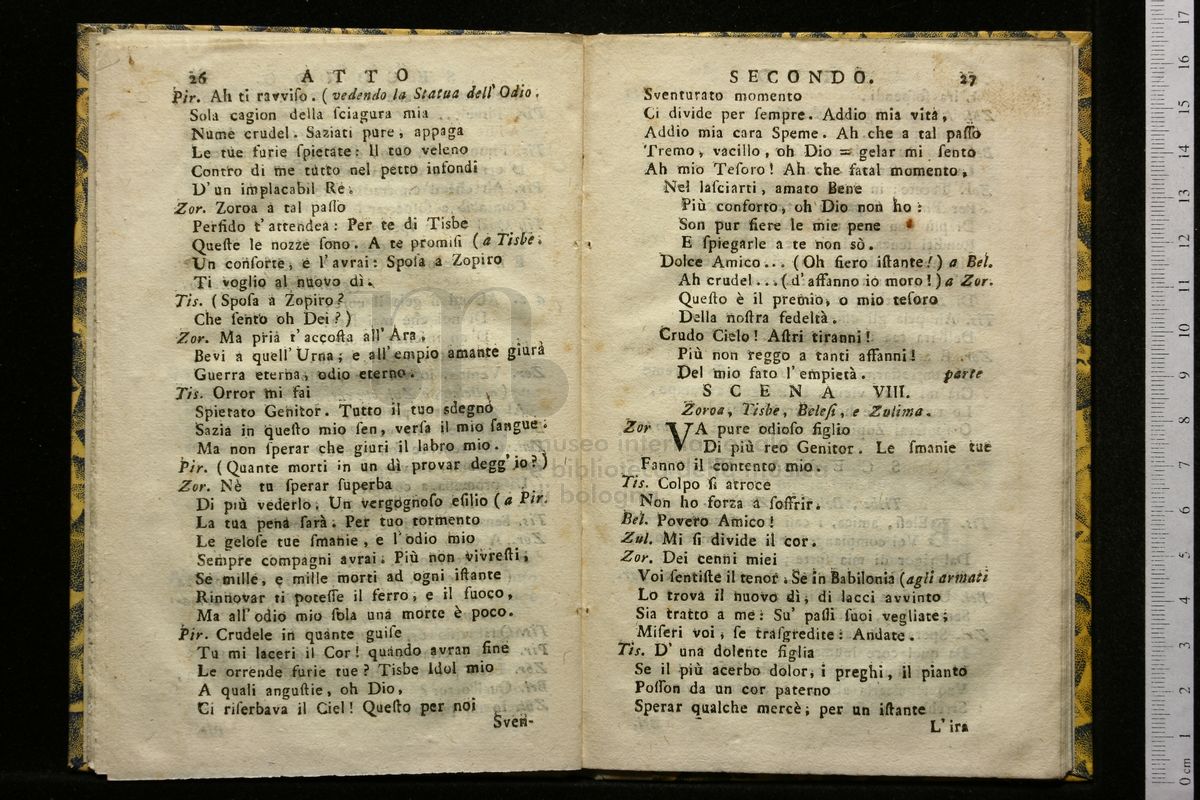 26 ATTO
Pir. Ah ti ravviſo. (vedendo la Statua dell'Odio.
Sola cagion della ſciagura mia
Nume crudel. Saziati pure, appaga
Le tue furie ſpietate: Il tuo veleno
Contro di me tutto nel petto infondi
D'un implacabil Re.
Zor. Zoroa a tal paſſo
Perfido t'attendea: Per te di Tisbe
Queſte le nozze ſono. A te promiſi (a Tisbe.
Un conſorte, e l'avrai: Spoſa a Zopiro
Ti voglio al nuovo dì.
Tis. (Spoſa a Zopiro?
Che ſento oh Dei?)
Zor. Ma pria t'accoſta all'Ara,
Bevi a quell'Urna; e all'empio amante giura
Guerra eterna, odio eterno.
Tis. Orror mi fai
Spietato Genitor. Tutto il tuo sdegno
Sazia in queſto mio ſen, verſa il mio ſangue.
Ma non ſperar che giuri il labro mio.
Pir. (Quante morti in un dì provar degg'io?)
Zor. Nè tu ſperar ſuperba
Di più vederlo. Un vergognoſo eſilio (a Pir.
La tua pena ſarà. Per tuo tormento
Le geloſe tue ſmanie, e l'odio mio
Sempre compagni avrai. Più non vivreſti,
Se mille, e mille morti ad ogni iſtante
Rinnovar ti poteſſe il ferro, e il fuoco,
Ma all'odio mio ſola una morte è poco.
Pir. Crudele in quante guiſe
Tu mi laceri il Cor! quando avran fine
Le orrende furie tue? Tisbe Idol mio
A quali anguſtie, oh Dio,
Ci riſerbava il Ciel! Queſto per noi
Sven-
SECONDO. 27
Sventurato momento
Ci divide per ſempre. Addio mia vita,
Addio mia cara Speme. Ah che a tal paſſo
Tremo, vacillo, oh Dio = gelar mi ſento
Ah mio Teſoro! Ah che fatal momento,
Nel laſciarti, amato Bene
Più conforto, oh Dio non ho:
Son pur fiere le mie pene
E ſpiegarle a te non sò.
Dolce Amico... (Oh fiero iſtante!) a Bel.
Ah crudel... (d'affanno io moro!) a Zor.
Queſto è il premio, o mio teſoro
Della noſtra fedeltà.
Crudo Cielo! Aſtri tiranni!
Più non reggo a tanti affanni!
Del mio fato l'empietà. parte
SCENA VIII.
Zoroa, Tisbe, Beleſi, e Zulima.
Zor VA pure odioſo figlio
Di più reo Genitor. Le ſmanie tue
Fanno il contento mio.
Tis. Colpo ſi atroce
Non ho forza a ſoffrir.
Bel. Povero Amico!
Zul. Mi ſi divide il cor.
Zor. Dei cenni miei
Voi ſentiſte il tenor. Se in Babilonia (agli armati
Lo trova il nuovo dì, di lacci avvinto
Sia tratto a me: Su' paſſi ſuoi vegliate;
Miſeri voi, ſe traſgredite: Andate.
Tis. D'una dolente figlia
Se il più acerbo dolor, i preghi, il pianto
Poſſon da un cor paterno
Sperar qualche mercè; per un iſtante
L'ira
museo internazionale
biblioteca della musica
di bologna
0 cm 1 2 3 4 5 6 7 8 9 10 11 12 13 14 15 16 17